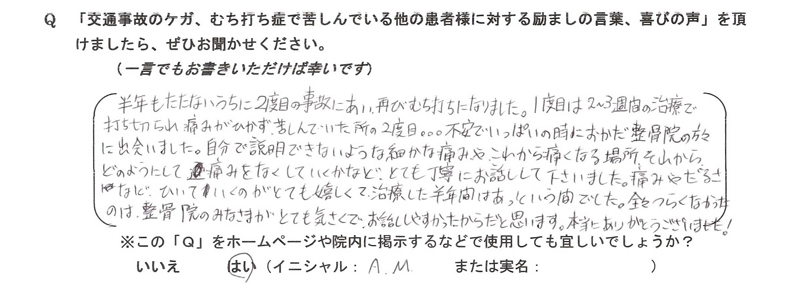 Q 「交通事故のケガ、むち打ち症で苦しんでいる他の患者様に対する励ましの言葉、喜びの声」を頂
けましたら、ぜひお聞かせください。
（一言でもお書きいただけば幸いです）
半年もたたないうちに2度目の事故にあい、再びむち打ちになりました。1度目は2~3週間の治療で
打ち切られ痛みがひかず、苦しんでいた所の2度目。。。不安でいっぱいの時におかだ整骨院の方々
に出会いました。自分で説明できないような細かな痛みや、これから痛くなる場所、そしから
どのようにして痛みをなくしていくかなど、とても丁寧にお話しして下さいました。痛みやだるさ
など、ひいていくのがとても嬉しくて、治療した半年間はあっという間でした。全くつらくなかった
のは、整骨院のみなさまがとても気さくで、お話しやすかったからだと思います。本当にありがとうございました！
※この「Q」をホームページや院内に掲示するなどで使用しても宜しいでしょうか？
いいえ　はい（イニシャル： A.M　または実名：　）